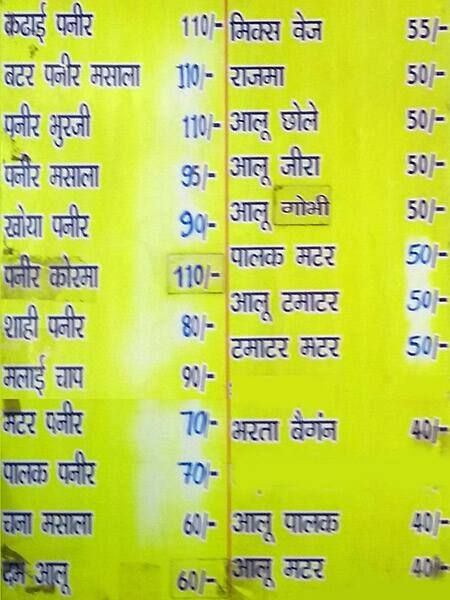 कढाई पनीर 110/-
बटर पनीर मसाला 110/-
पनीर भुरजी 110/-
पनीर मसाला 95/-
खोया पनीर 90/-
पनीर कोरमा 110/-
शाही पनीर 80/-
मलाई चाप 90/-
मटर पनीर 70/-
पालक पनीर 70/-
चना मसाला 60/-
दम आलू 60/-
मिक्स वेज 55/-
राजमा 50/-
आलू छोले 50/-
आलू जीरा 50/-
आलू गोभी 50/-
पालक मटर 50/-
आलू टमाटर 50/-
टमाटर मटर 50/-
भरता बैगंन 40/-
आलू पालक 40/-
आलू मटर 40/-